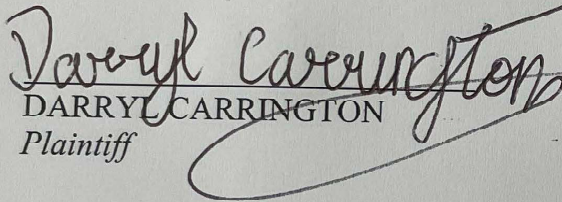 Darryl Carrington
DARRYL CARRINGTON
Plaintiff